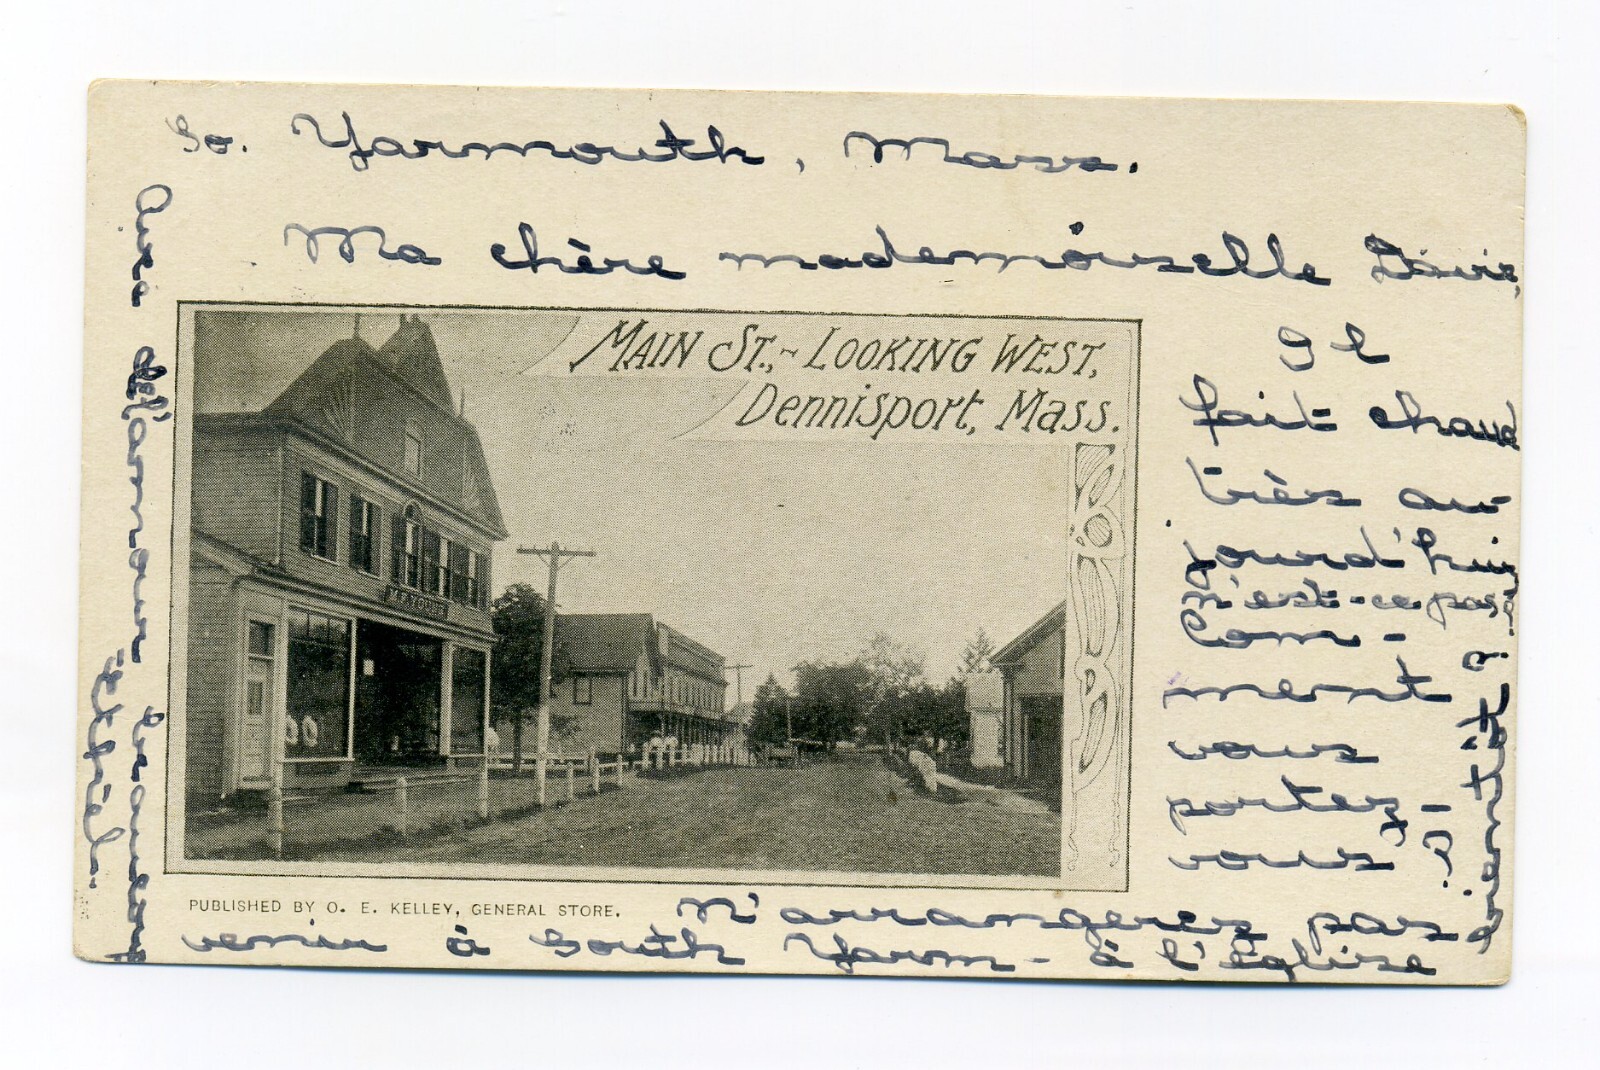 So. Yarmouth, Mass.
Ma chère mademoiselle Davis,
Il
fait chaud
très au-
jourd'hui
N'est-ce pas?
Com-
ment
vous
portez-
vous?
N'arrangerez pas
venir à South Yarm- à l'église
bientôt?
Avec de l'amour beaucoup
Ethel.
MAIN ST., - LOOKING WEST,
DENNISPORT, MASS.
PUBLISHED BY O. E. KELLEY, GENERAL STORE.